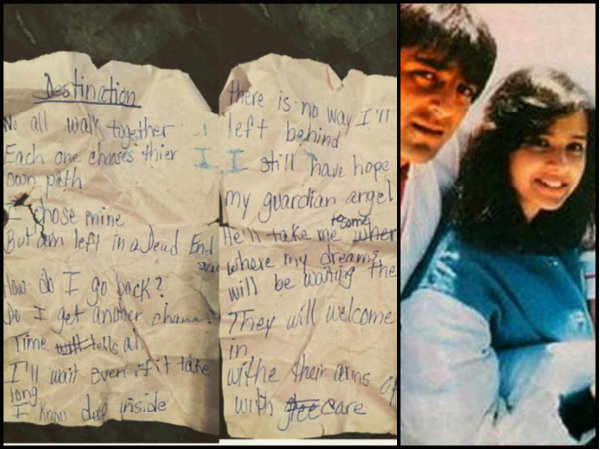 Destination
We all walk together
Each one chooses thier
own path
I chose mine
But am left in a Dead End
How do I go back?
Do I get another chance?
Time tells al
I'll wait even if it take
long
I know deep inside
there is no way I'll
left behind
I still have hope
my guardian angel
He'll take me to some
where my dreams
will be waiting the
They will welcome
in
withe their arms
with care